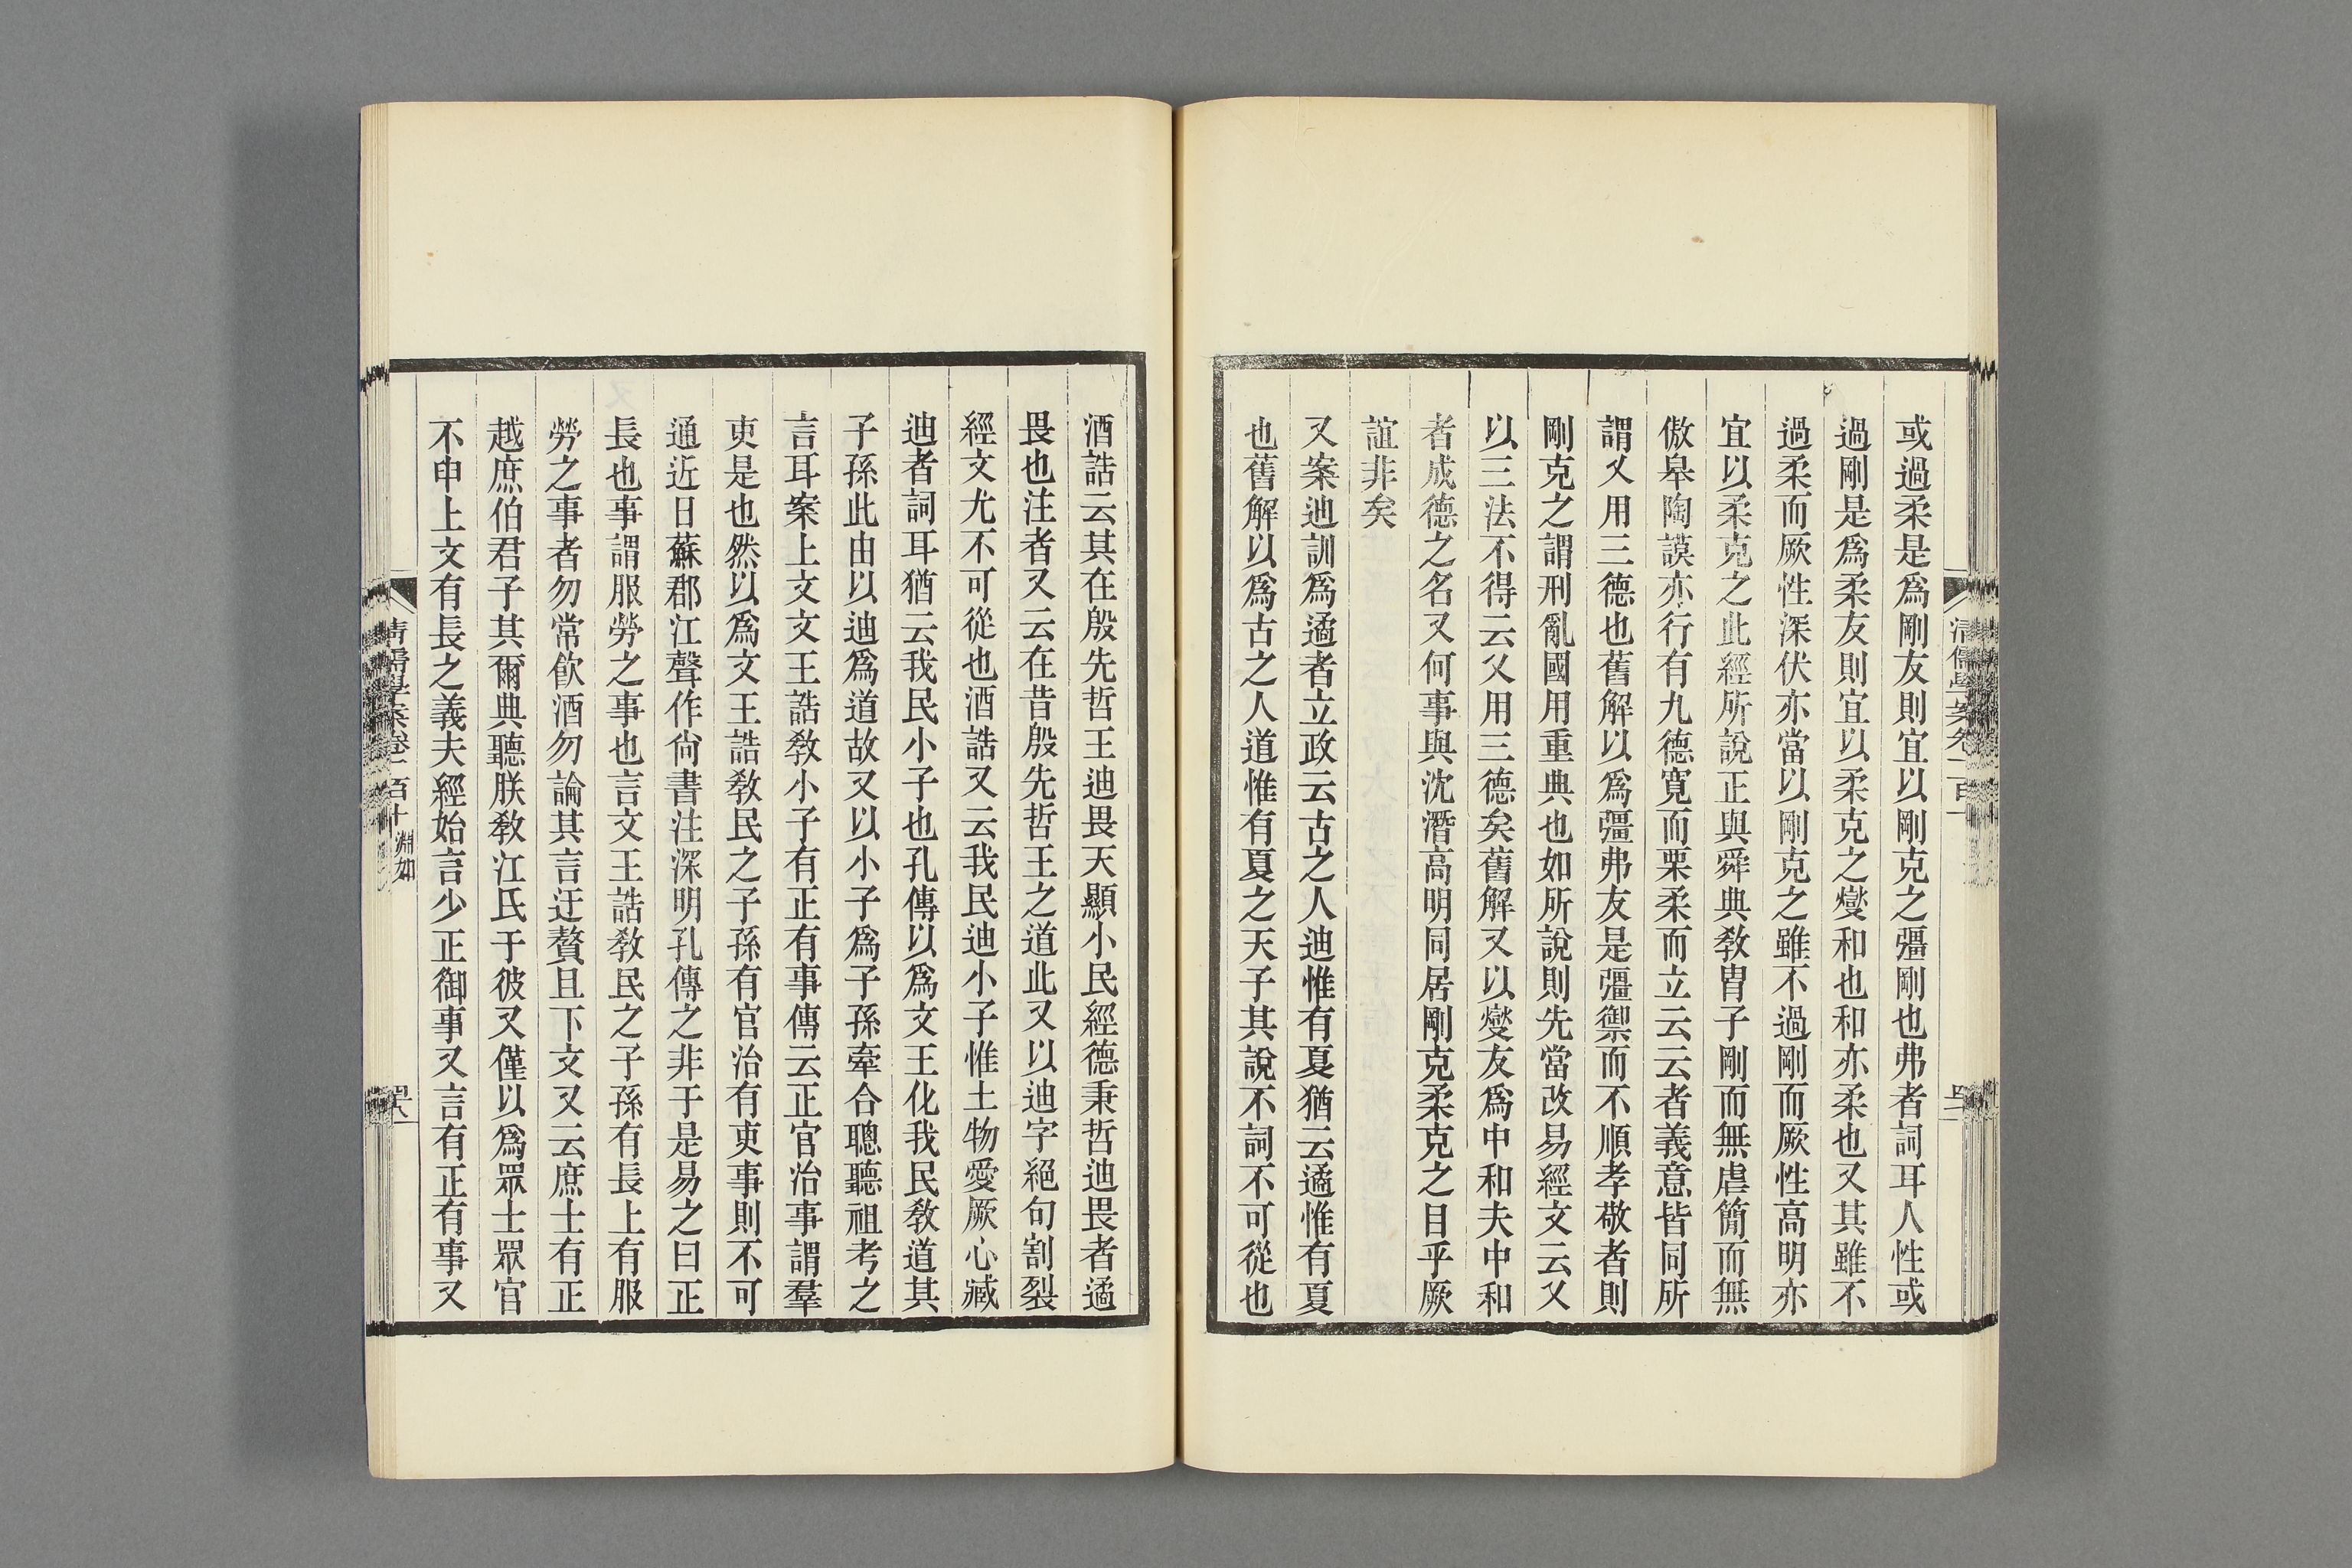 或過柔是爲剛友則宜以剛克之彊剛也弗者詞耳人性或
過剛是爲柔友則宜以柔克之燮和也和亦柔也又其雖不
過柔而厥性深伏亦當以剛克之雖不過剛而厥性高明亦
宜以柔克之此經所說正與舜典敎胄子剛而無虐簡而無
傲皋陶謨亦行有九德寬而栗柔而立云云者義意皆同所
謂乂用三德也舊解以爲彊弗友是彊禦而不順孝敬者則
剛克之謂刑亂國用重典也如所說則先當改易經文云乂
以三法不得云乂用三德矣舊解又以燮友爲中和夫中和
者成德之名又何事與沈潛高明同居剛克柔克之目乎厥
誼非矣
又案迪訓爲遹者立政云古之人迪惟有夏猶云遹惟有夏
也舊解以爲古之人道惟有夏之天子其說不詞不可從也
酒誥云其在殷先哲王迪畏天顯小民經德秉哲迪畏者遹
畏也注者又云在昔殷先哲王之道此又以迪字絕句割裂
經文尤不可從也酒誥又云我民迪小子惟土物愛厥心臧
迪者詞耳猶云我民小子也孔傳以爲文王化我民敎道其
子孫此由以迪爲道故又以小子爲子孫牽合聰聽祖考之
言耳案上文文王誥敎小子有正有事傳云正官治事謂羣
吏是也然以爲文王誥敎民之子孫有官治有吏事則不可
通近日蘇郡江聲作尙書注深明孔傳之非于是易之曰正
長也事謂服勞之事也言文王誥敎民之子孫有長上有服
勞之事者勿常飮酒勿論其言迂贅且下文又云庶士有正
越庶伯君子其爾典聽朕敎江氏于彼又僅以爲眾士眾官
不申上文有長之義夫經始言少正御事又言有正有事又
淸儒學案卷一百十 淵如